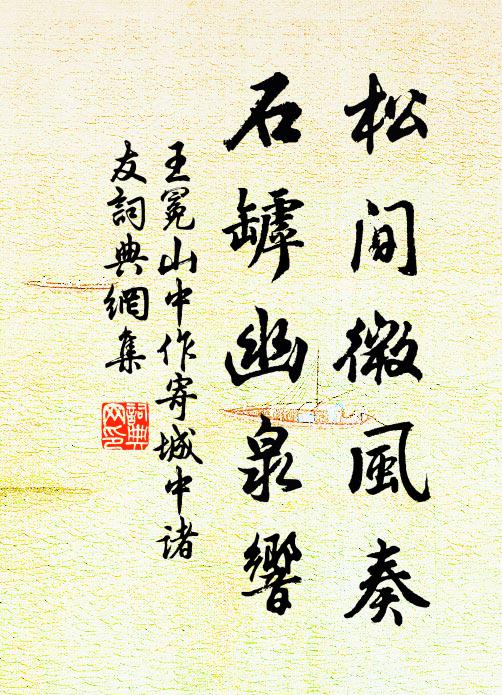 松間微風奏
石罅幽泉響
王冕山中作寄城中諸
友詞典網集
詞典
网印